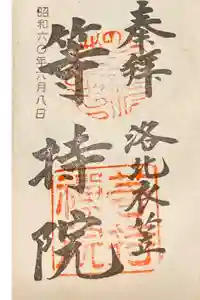 奉拝
洛北衣笠
等持院
昭和六〇年八月八日